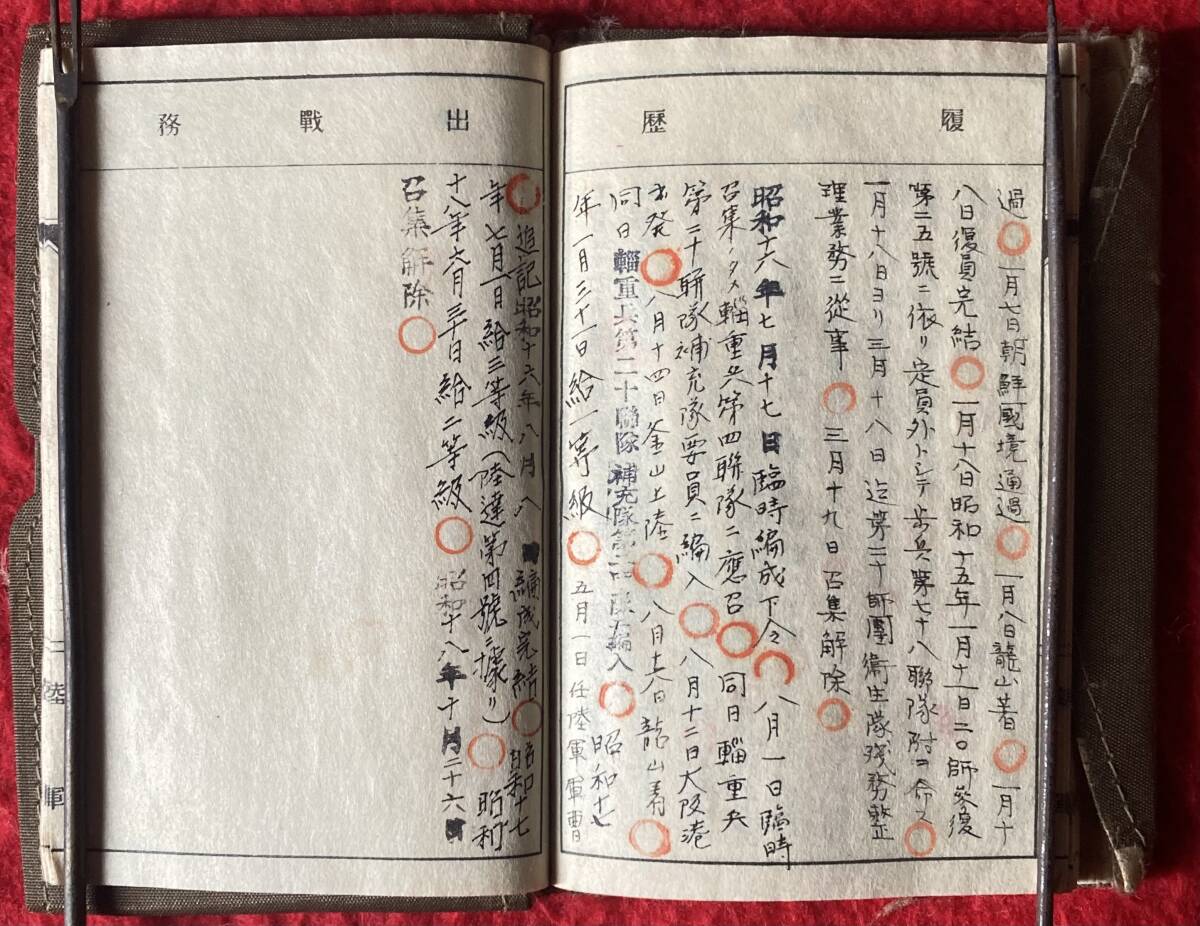 履歴
過○一月七日朝鮮國境通過○一月八日龍山著○一月十
八日復員完結○一月十八日昭和十五年一月十一日二〇師參復
第二五號ニ依リ定員外トシテ歩兵第七十八聯隊附ヲ命ス○
一月十八日ヨリ三月十八日迄第二十師團衛生隊残務整
理業務ニ從事○三月十九日召集解除○
昭和十六年七月十七日臨時編成下令○八月一日臨時
召集ノタメ輜重兵第四聯隊ニ應召○同日輜重兵
第二十聯隊補充隊要員ニ編入○八月十二日大阪港
出發○八月十四日釜山上陸○八月十六日龍山着○
同日輜重兵第二十聯隊補充隊第二中隊編入○昭和十七
年一月三十一日給一等級○五月一日任陸軍軍曹
出戰務
○追記昭和十六年八月八日編成完結○昭和十七
年七月一日給三等級(陸達第四號ニ據リ)○昭和
十八年六月三十日給二等級○昭和十八年十月二十六日
召集解除○
陸軍